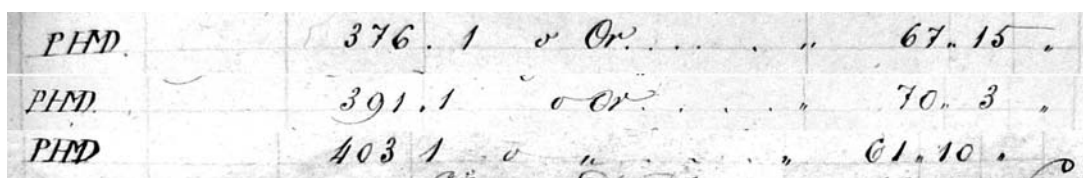 PHD. 376. 1 o Or. . . . . " 67" 15 "
PHD. 391. 1 o Or . . . . " 70" 3 "
PHD 403 1 o " . . . . " 61" 10 "